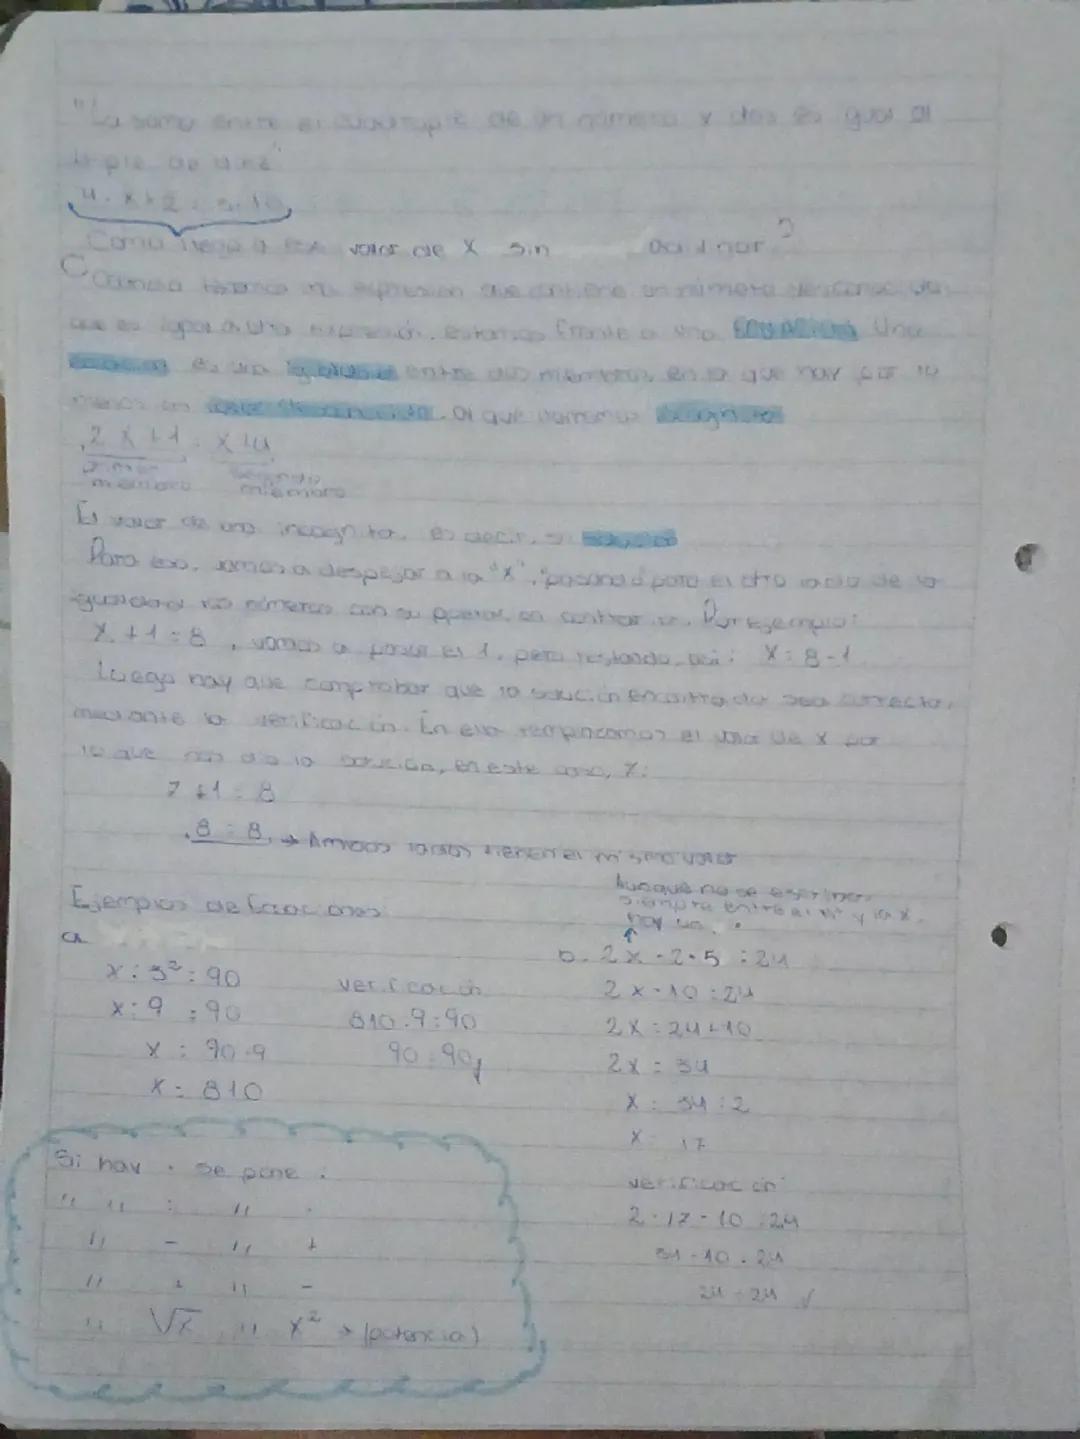 "La suma entre el cuadruple de un número y dos es igual al
triple de diez"
4 . x + 2 = 3 . 10
Como llego a ese valor de x sin adivinar?
Cuando tenemos una expresión que contiene un número desconocido
que es igual a otra expresión, estamos frente a una Ecuación. Una
ecuación es una igualdad entre dos miembros, en la que hay por lo
menos un valor desconocido, al que llamamos incognita
2x + 1 = x + 4
primer miembro segundo miembro
El valor de una incognita, es decir, su solución
Para eso, vamos a despejar a la "x", "pasando" para el otro lado de la
igualdad los números con su operación contraria. Por ejemplo:
x + 1 = 8, vamos a pasar el 1, pero restando, así: x = 8 - 1
Luego hay que comprobar que la solución encontrada sea correcta,
mediante la verificación. En ella remplazamos el valor de x por
lo que nos dio la solución, en este caso, 7:
7 + 1 = 8
8 = 8 → Ambos lados tienen el mismo valor
Ejemplos de Ecuaciones
a
x : 3² = 90
x : 9 = 90
x = 90 . 9
x = 810
verificación
810 : 9 = 90
90 = 90
Aunque no se escriba,
siempre entre el nº y la x
hay un .
b. 2x - 2 . 5 = 24
2x - 10 = 24
2x = 24 + 10
2x = 34
x = 34 : 2
x = 17
verificación:
2 . 17 - 10 = 24
34 - 10 = 24
24 = 24 ✓
Si hay . se pone :
" " : " .
" - " +
" + " -
" √x " x² → (potencia)